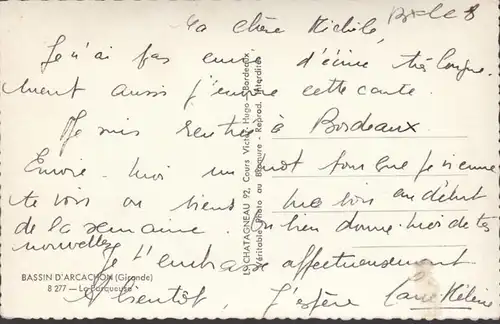 Ma chère Michèle,
Je n'ai pas envie d'écrire très longue-
ment aussi j'envoie cette carte.
Je suis rentrée à Bordeaux
Envoie-moi un mot pour que je vienne
te voir ou viens me voir au début
de la semaine. Ou bien donne-moi de tes
nouvelles
Je t'embrasse affectueusement
A bientôt, j'espère
BASSIN D'ARCACHON (Gironde)
8 277 — La Parqueuse
L. CHATAGNEAU 92, Cours Victor Hugo - Bordeaux
Véritable photo au Bromure - Reprod. Interdite